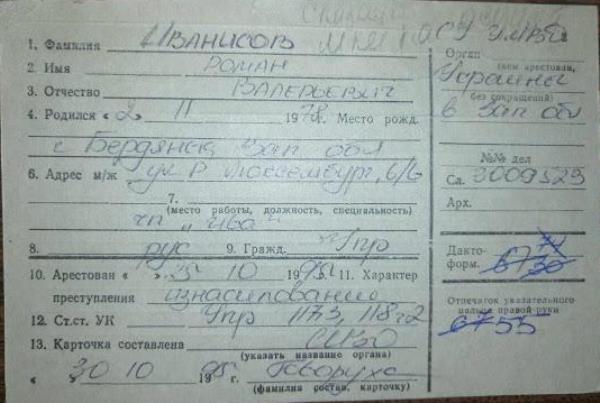 1. Фамилия Иванисов
2. Имя Роман
3. Отчество Валерьевич
4. Родился «2» II 197 г. Место рожд.
г. Бердянск Зап обл
6. Адрес м/ж ул Р Люксембург, 6/6
7.
(место работы, должность, специальность)
чп „ива"
8. рус 9. Гражд. Укр
10. Арестован « 25 10 1995 11. Характер
преступления изнасилованию
12. Ст.ст. УК Укр 117 3, 118 ч2
13. Карточка составлена СИЗО
(указать название органа)
« 30 10 1995 г. Говоруха
(фамилия состав. карточку)
ОСУ УМВД
Орган
(кем арестован,
Украины
без сокращений)
в Зап обл
№№ дел
Сл. 3009523
Арх.
Дакто-
форм.
Отпечаток указательного
пальца правой руки
6755